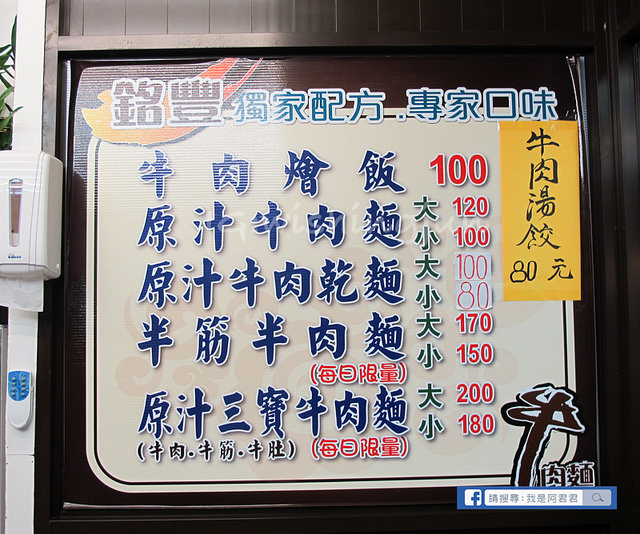 銘豐 獨家配方.專家口味
牛肉燴飯 100
原汁牛肉麵 大 120
小 100
原汁牛肉乾麵 大 100
小 80
半筋半肉麵 大 170
小 150
(每日限量)
原汁三寶牛肉麵 大 200
小 180
(牛肉.牛筋.牛肚) (每日限量)
牛肉湯餃
80元
牛肉麵
請搜尋:我是阿君君